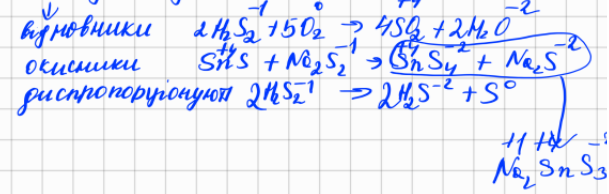 відновники 2H₂S₂⁻¹ + 5O₂⁰ → 4SO₂ + 2H₂O⁻²
окисники Sn⁺⁴S + Na₂S₂⁻¹ → Sn⁺⁴S₄⁻² + Na₂S⁻²
диспропорціонують 2H₂S₂⁻¹ → 2H₂S⁻² + S⁰
+1 +4 -2
Na₂SnS₃